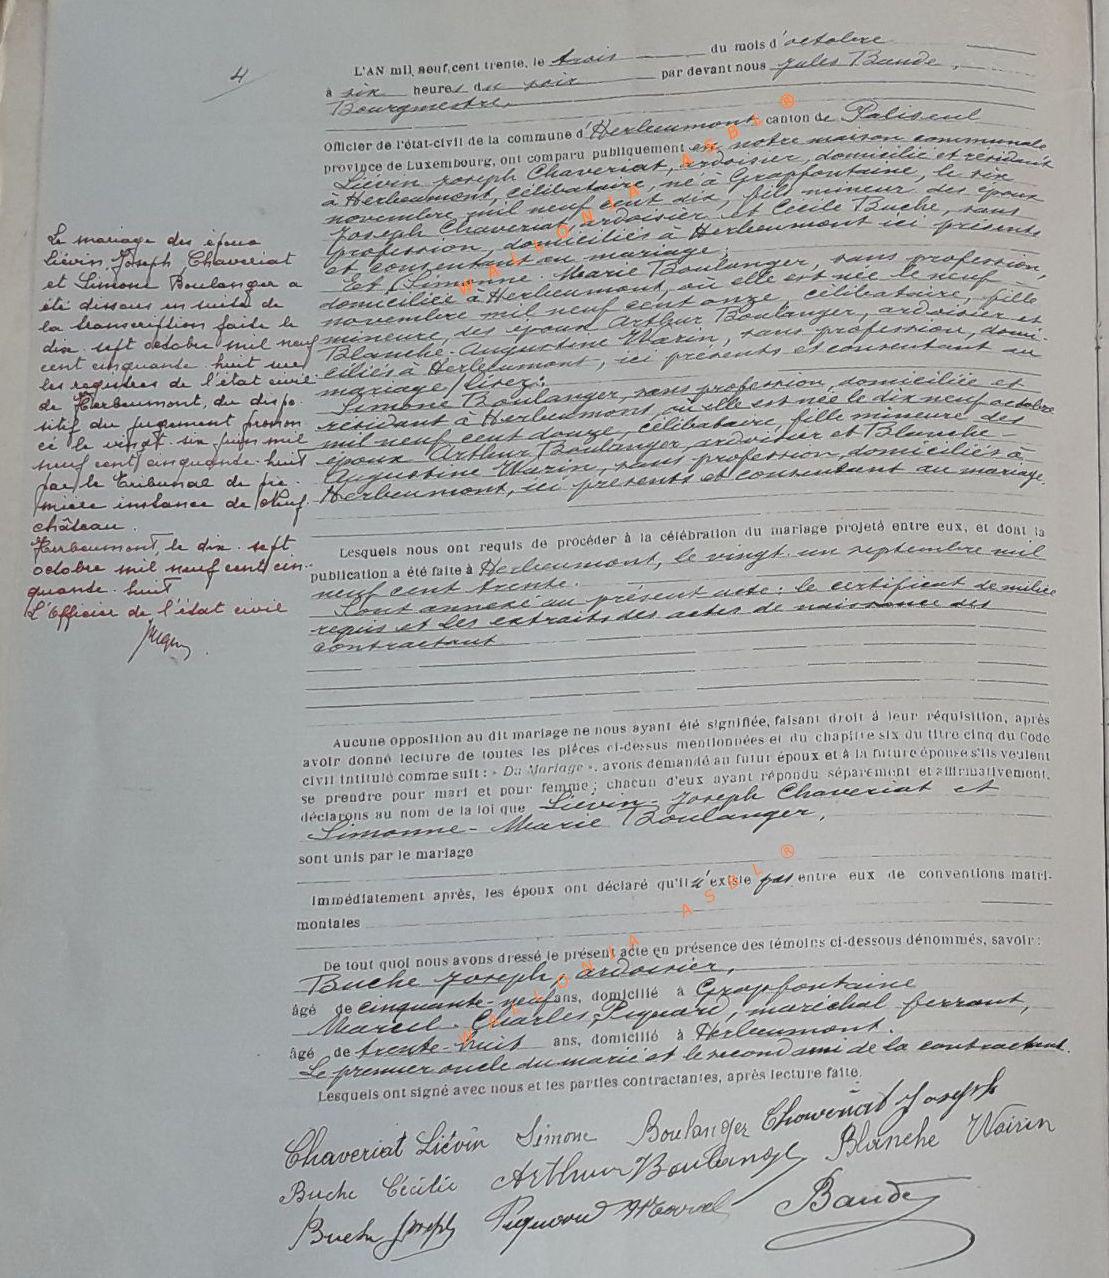 4
L'AN mil neuf cent trente, le trois du mois d'octobre
à six heures du soir par devant nous Jules Baude,
Bourgmestre,
Officier de l'état-civil de la commune d'Herbeumont, canton de Paliseul
province de Luxembourg, ont comparu publiquement en notre maison communale
Liévin-Joseph Chaveriat, ardoisier, domicilié et résidant
à Herbeumont, célibataire, né à Grapfontaine, le six
novembre mil neuf cent dix, fils mineur des époux
Joseph Chaveriat, ardoisier et Cécile Buche, sans
profession, domiciliés à Herbeumont ici présents
et consentant au mariage;
Et Simonne-Marie Boulanger, sans profession,
domiciliée à Herbeumont, où elle est née le neuf
novembre mil neuf cent onze, célibataire, fille
mineure, des époux Arthur Boulanger, ardoisier et
Blanche-Augustine Warin, sans profession, domi-
ciliés à Herbeumont, ici présents et consentant au
mariage, lisez:
Simone Boulanger, sans profession, domiciliée et
résidant à Herbeumont, où elle est née le dix neuf octobre
mil neuf cent douze, célibataire, fille mineure des
époux Arthur Boulanger, ardoisier et Blanche-
Augustine Warin, sans profession, domiciliés à
Herbeumont, ici présents et consentant au mariage.
Le mariage des époux
Liévin Joseph Chaveriat
et Simone Boulanger a
été dissous ensuite de
la transcription faite le
dix sept octobre mil neuf
cent cinquante huit sur
les registres de l'état civil
de Herbeumont, du dispo-
sitif du jugement pronon
cé le vingt six juin mil
neuf cent cinquante huit
par le Tribunal de pre-
mière instance de Neuf-
château.
Herbeumont, le dix-sept
octobre mil neuf cent cin-
quante-huit
L'Officier de l'état civil
Lesquels nous ont requis de procéder à la célébration du mariage projeté entre eux, et dont la
publication a été faite à Herbeumont, le vingt-un septembre mil
neuf cent trente.
Sont annexé au présent acte: le certificat de milice
requis et les extraits des actes de naissance des
contractant
Aucune opposition au dit mariage ne nous ayant été signifiée, faisant droit à leur réquisition, après
avoir donné lecture de toutes les pièces ci-dessus mentionnées et du chapitre six du titre cinq du Code
civil intitulé comme suit : « Du Mariage », avons demandé au futur époux et à la future épouse s'ils veulent
se prendre pour mari et pour femme; chacun d'eux ayant répondu séparément et affirmativement,
déclarons au nom de la loi que Liévin-Joseph Chaveriat et
Simonne-Marie Boulanger,
sont unis par le mariage
Immédiatement après, les époux ont déclaré qu'il n'existe pas entre eux de conventions matri-
moniales
De tout quoi nous avons dressé le présent acte en présence des témoins ci-dessous dénommés, savoir :
Buche Joseph, ardoisier,
âgé de cinquante-neuf ans, domicilié à Grapfontaine
Marcel-Charles Piquard, maréchal ferrant,
âgé de trente-huit ans, domicilié à Herbeumont.
Le premier oncle du marié et le second ami de la contractant.
Lesquels ont signé avec nous et les parties contractantes, après lecture faite.
Chaveriat Liévin Simone Boulanger Chaveriat Joseph
Buche Cécilie Arthur Boulanger Blanche Wairin
Buche Joseph Piquard Marcel Baude
WALLONIA ASBL ®
WALLONIA ASBL ®